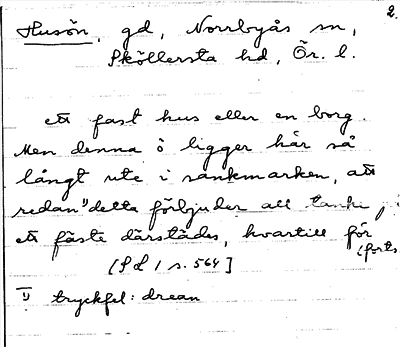 2.
Husön, gd, Norrbyås sn,
Sköllersta hd, Ör. l.
ett fast hus eller en borg.
Men denna ö ligger här så
långt ute i sankmarken, att
redan 1) detta förbjuder all tanke,
ett fäste därstädes, hvartill för
(forts.
[SL 1 s. 564]
1) tryckfel: drean